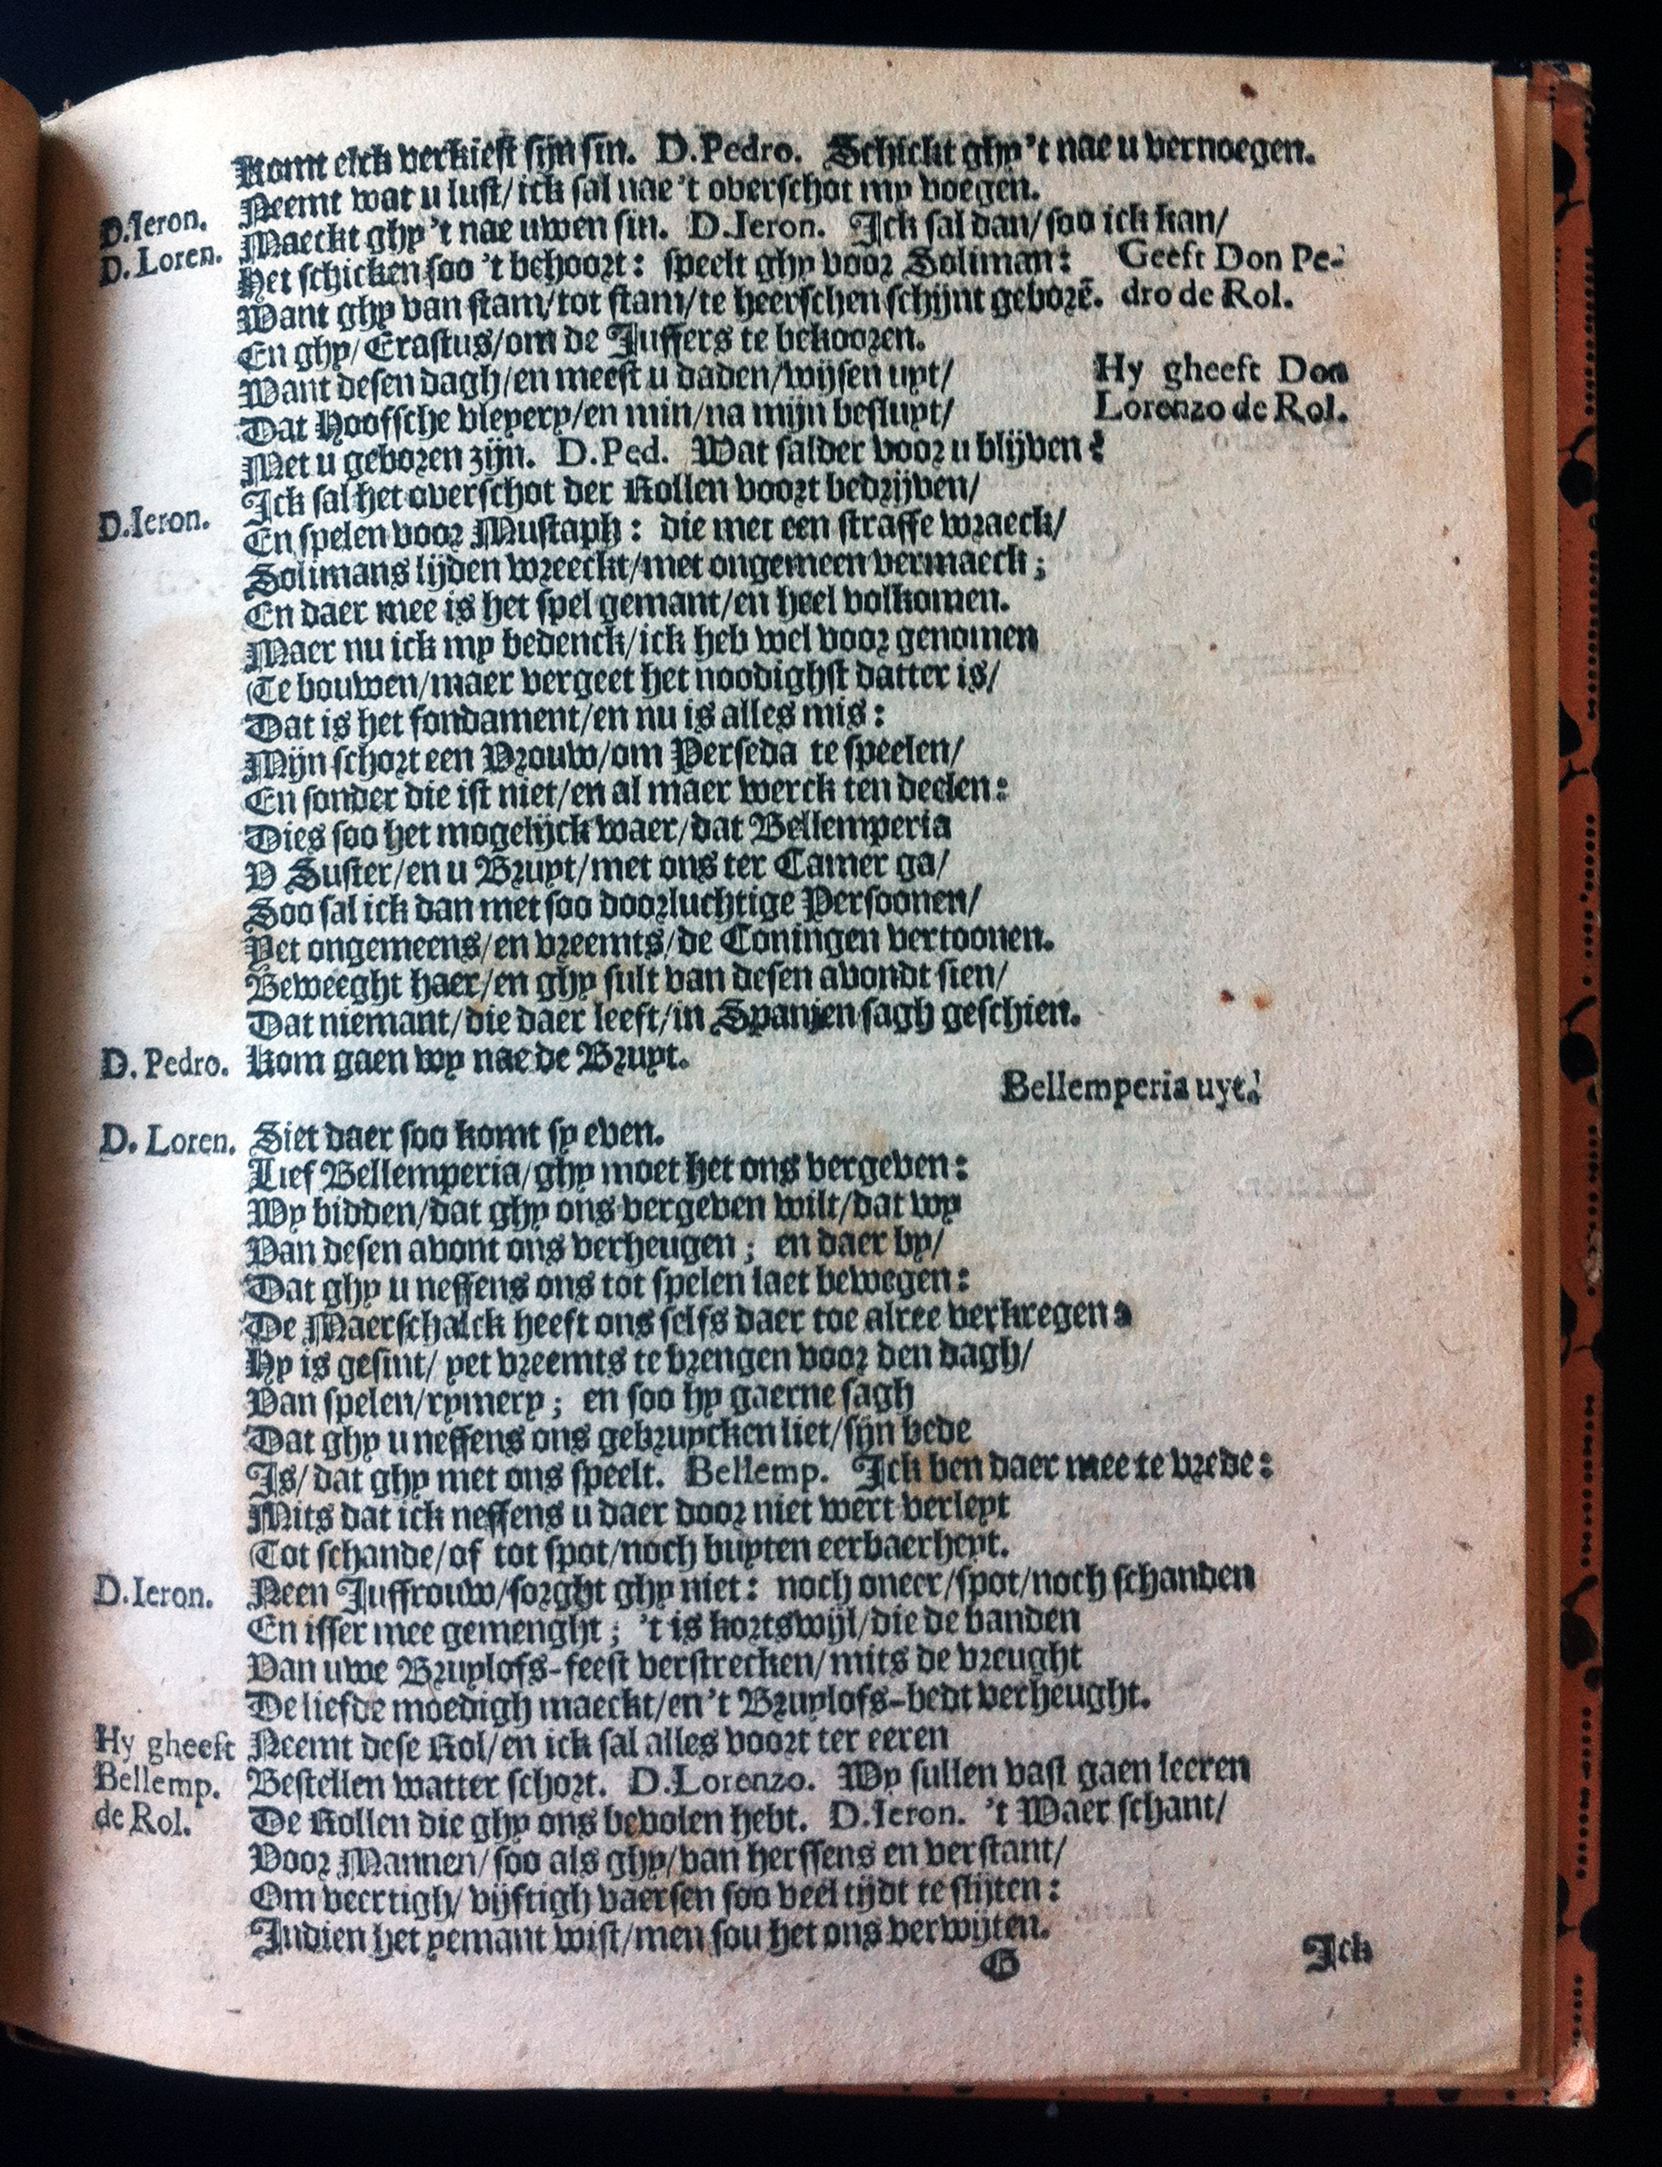 Komt elck verkiest sijn sin. D.Pedro. Schickt ghy 't nae u vernoegen.
D.Ieron. Neemt wat u lust/ick sal nae 't overschot my voegen.
D. Loren. Maeckt ghy 't nae uwen sin. D.Ieron. Ick sal dan/soo ick kan/
Het schicken soo 't behoort: speelt ghy voor Soliman: Geeft Don Pe-
Want ghy van stam/tot stam/te heerschen schijnt geborē. dro de Rol.
En ghy/Erastus/om de Juffers te bekooren.
Want desen dagh/en meest u daden/wijsen uyt/ Hy gheeft Don
Dat Hoofsche vleyery/en min/na mijn besluyt/ Lorenzo de Rol.
Met u geboren zijn. D.Ped. Wat salder voor u blijven?
D.Ieron. Ick sal het overschot der Rollen voort bedrijven/
En spelen voor Mustaph: die met een straffe wraeck/
Solimans lijden wreeckt/met ongemeen vermaeck;
En daer mee is het spel gemant/en heel volkomen.
Maer nu ick my bedenck/ick heb wel voor genomen
Te bouwen/maer vergeet het noodighst datter is/
Dat is het fondament/en nu is alles mis:
Mijn schort een Vrouw/om Perseda te speelen/
En sonder die ist niet/en al maer werck ten deelen:
Dies soo het mogelijck waer/dat Bellemperia
V Suster/en u Bruyt/met ons ter Camer ga/
Soo sal ick dan met soo doorluchtige Persoonen/
Yet ongemeens/en vreemts/de Coningen vertoonen.
Beweeght haer/en ghy sult van desen avondt sien/
Dat niemant/die daer leeft/in Spanjen sagh geschien.
D. Pedro. Kom gaen wy nae de Bruyt.
Bellemperia uyt.
D. Loren. Siet daer soo komt sy even.
Lief Bellemperia/ghy moet het ons vergeven:
Wy bidden/dat ghy ons vergeven wilt/dat wy
Van desen avont ons verheugen; en daer by/
Dat ghy u neffens ons tot spelen laet bewegen:
De Maerschalck heeft ons selfs daer toe alree verkregen
Hy is gesint/ yet vreemts te brengen voor den dagh/
Van spelen/rymery; en soo hy gaerne sagh
Dat ghy u neffens ons gebruycken liet/sijn bede
Is/ dat ghy met ons speelt. Bellemp. Ick ben daer mee te vrede:
Mits dat ick neffens u daer door niet wert verleyt
Tot schande/of tot spot/noch buyten eerbaerheyt.
D.Ieron. Neen Juffrouw/sorght ghy niet: noch oneer/spot/noch schanden
En isser mee gemenght; 't is kortswijl/die de banden
Van uwe Bruylofs-feest verstrecken/mits de vreught
De liefde moedigh maeckt/en 't Bruylofs-bedt verheught.
Hy gheeft Neemt dese Rol/en ick sal alles voort ter eeren
Bellemp. Bestellen watter schort. D.Lorenzo. Wy sullen vast gaen leeren
de Rol. De Rollen die ghy ons bevolen hebt. D.Ieron. 't Waer schant/
Voor Mannen/soo als ghy/van herssens en verstant/
Om veertigh/ vijftigh vaersen soo veel tijdt te slijten:
Indien het yemant wist/men sou het ons verwijten.
G Ick